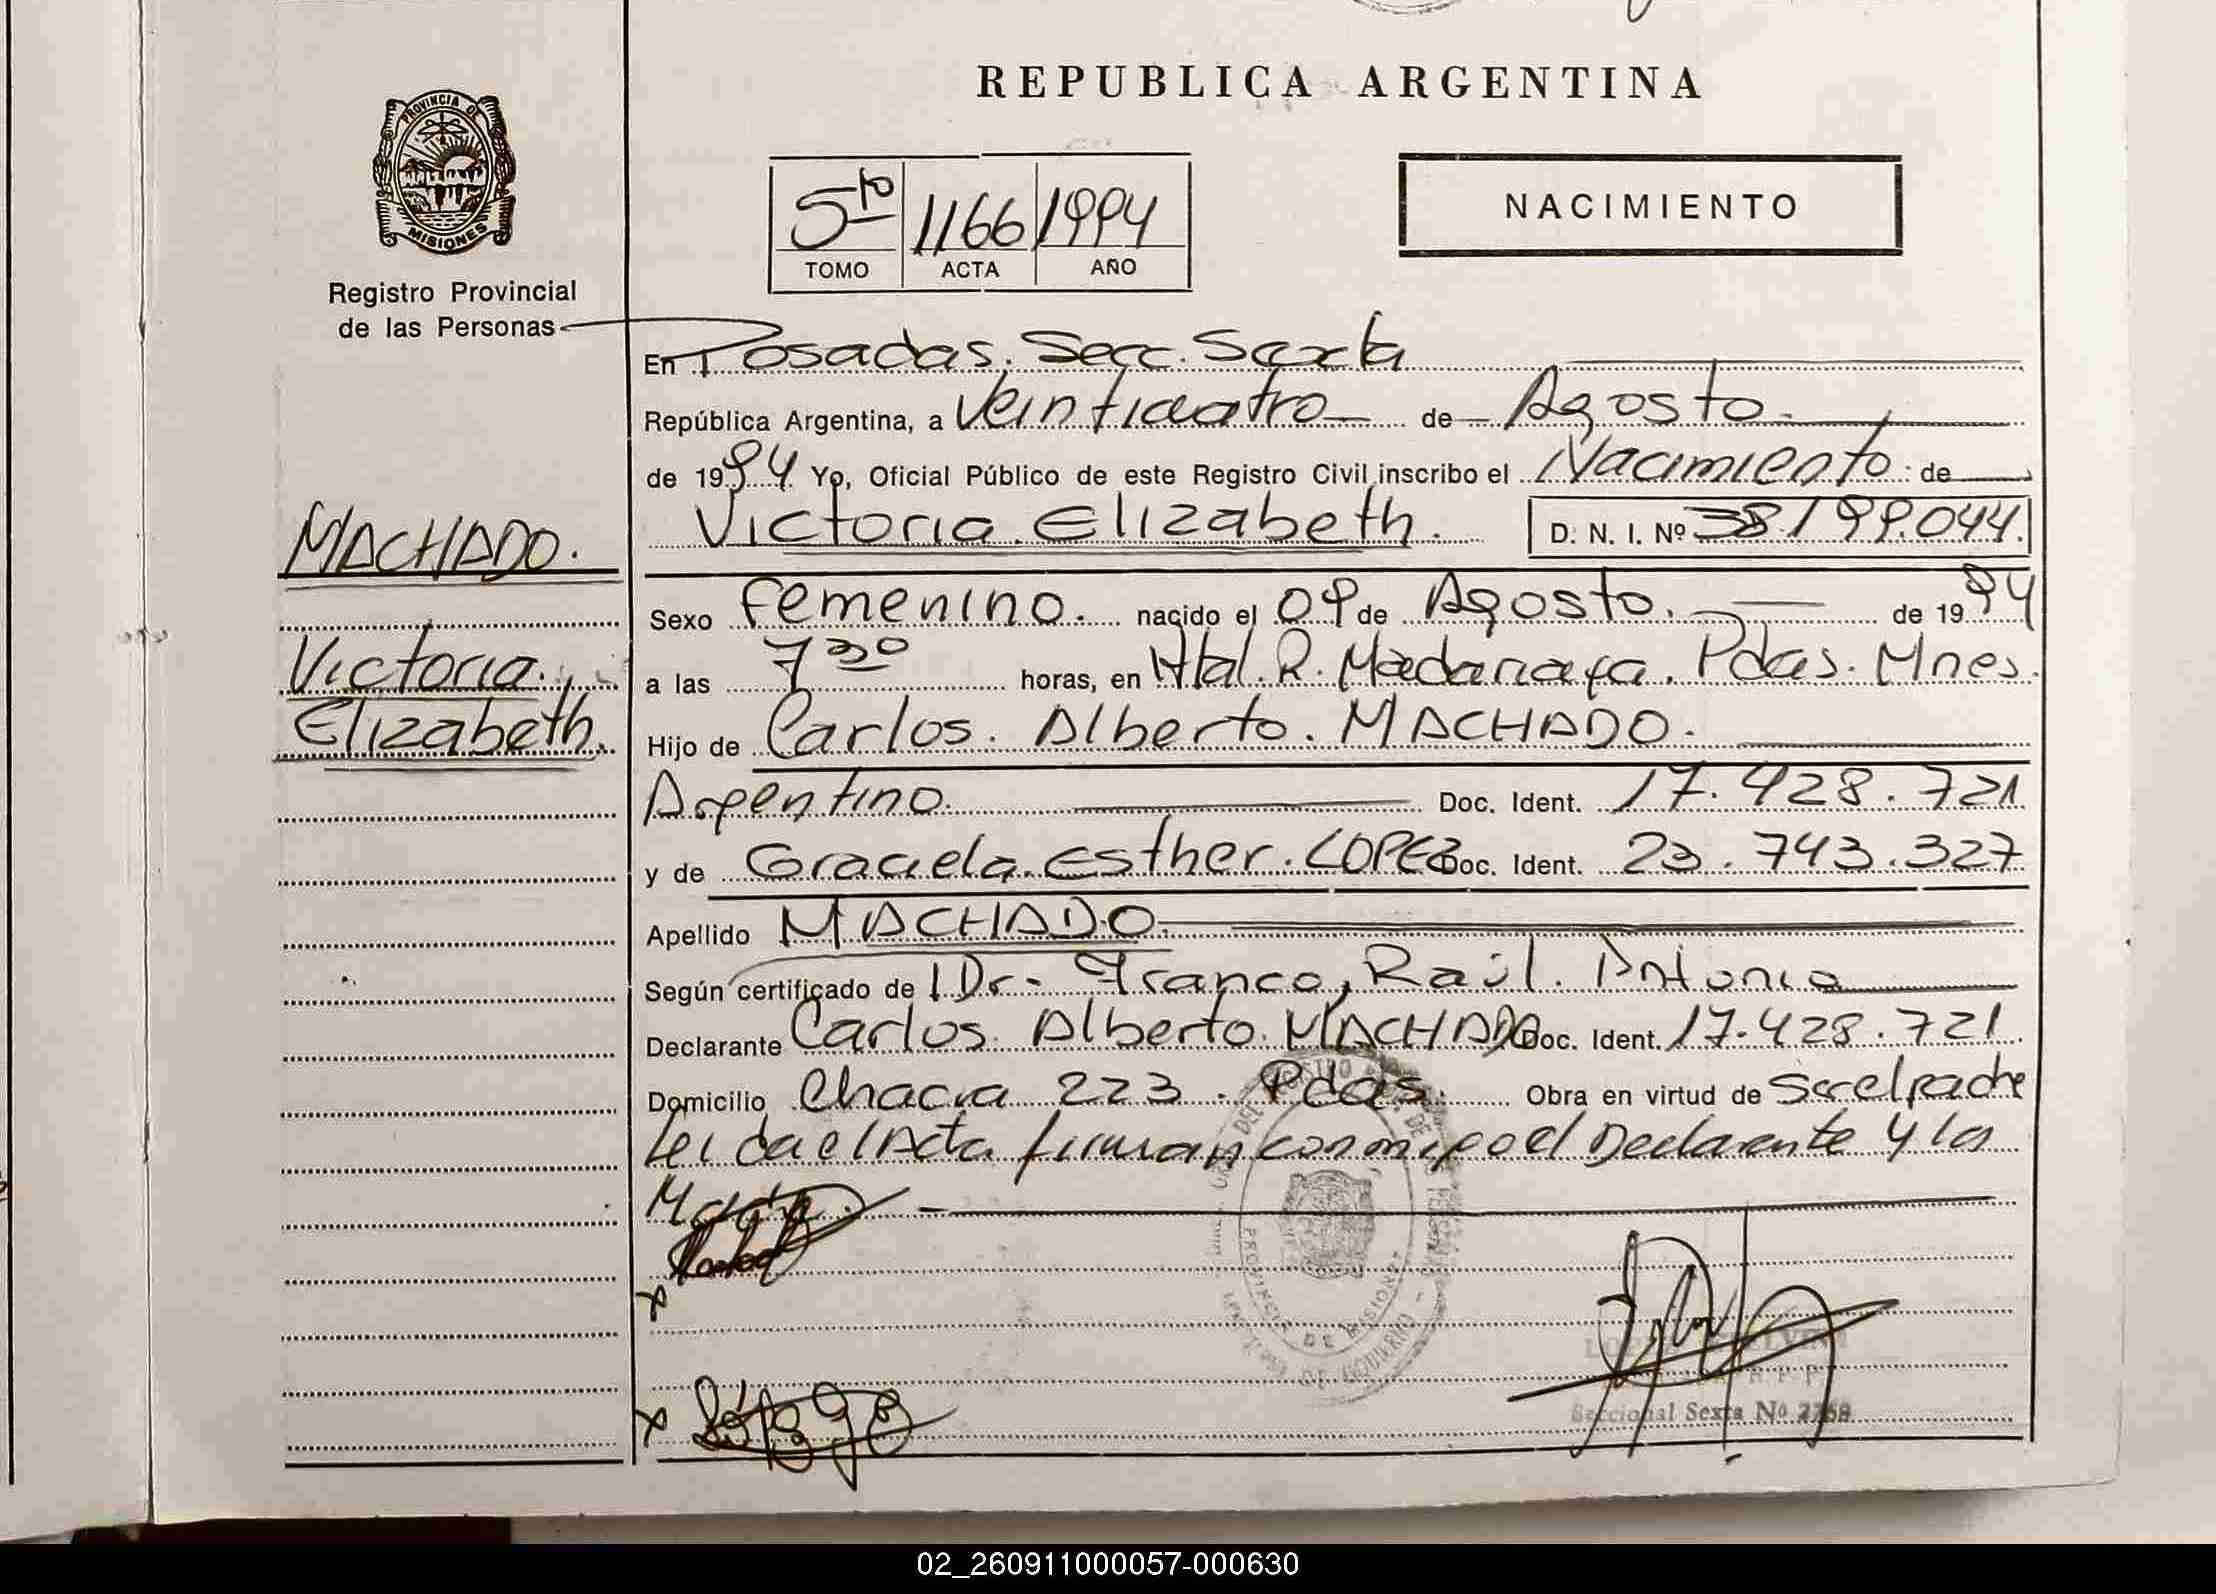 REPUBLICA ARGENTINA
PROVINCIA DE
MISIONES
Registro Provincial
de las Personas
5to 1166 1994
TOMO ACTA AÑO
NACIMIENTO
En Posadas. Secc. Sexta
República Argentina, a Veinticuatro de Agosto
de 1994 Yo, Oficial Público de este Registro Civil inscribo el Nacimiento de
Victoria Elizabeth. D. N. I. Nº 38.199.044.
MACHADO.
Victoria
Elizabeth.
Sexo Femenino. nacido el 09 de Agosto. de 1994
a las 7 30 horas, en Htal. R. Madariaga. Pdas. Mnes.
Hijo de Carlos. Alberto. MACHADO.
Argentino. Doc. Ident. 17.428.721
y de Graciela. Esther. LOPEZ Doc. Ident. 23.743.327
Apellido MACHADO.
Según certificado de l Dr. Franco, Raúl. Antonio
Declarante Carlos. Alberto. MACHADO Doc. Ident. 17.428.721
Domicilio Chacra 223. Pdas. Obra en virtud de Ser el padre
Leida el Acta firman conmigo el Declarante y la
Madre.
x
PROVINCIA DE MISIONES
x López G E
Seccional Sexta Nº 2768
02_260911000057-000630